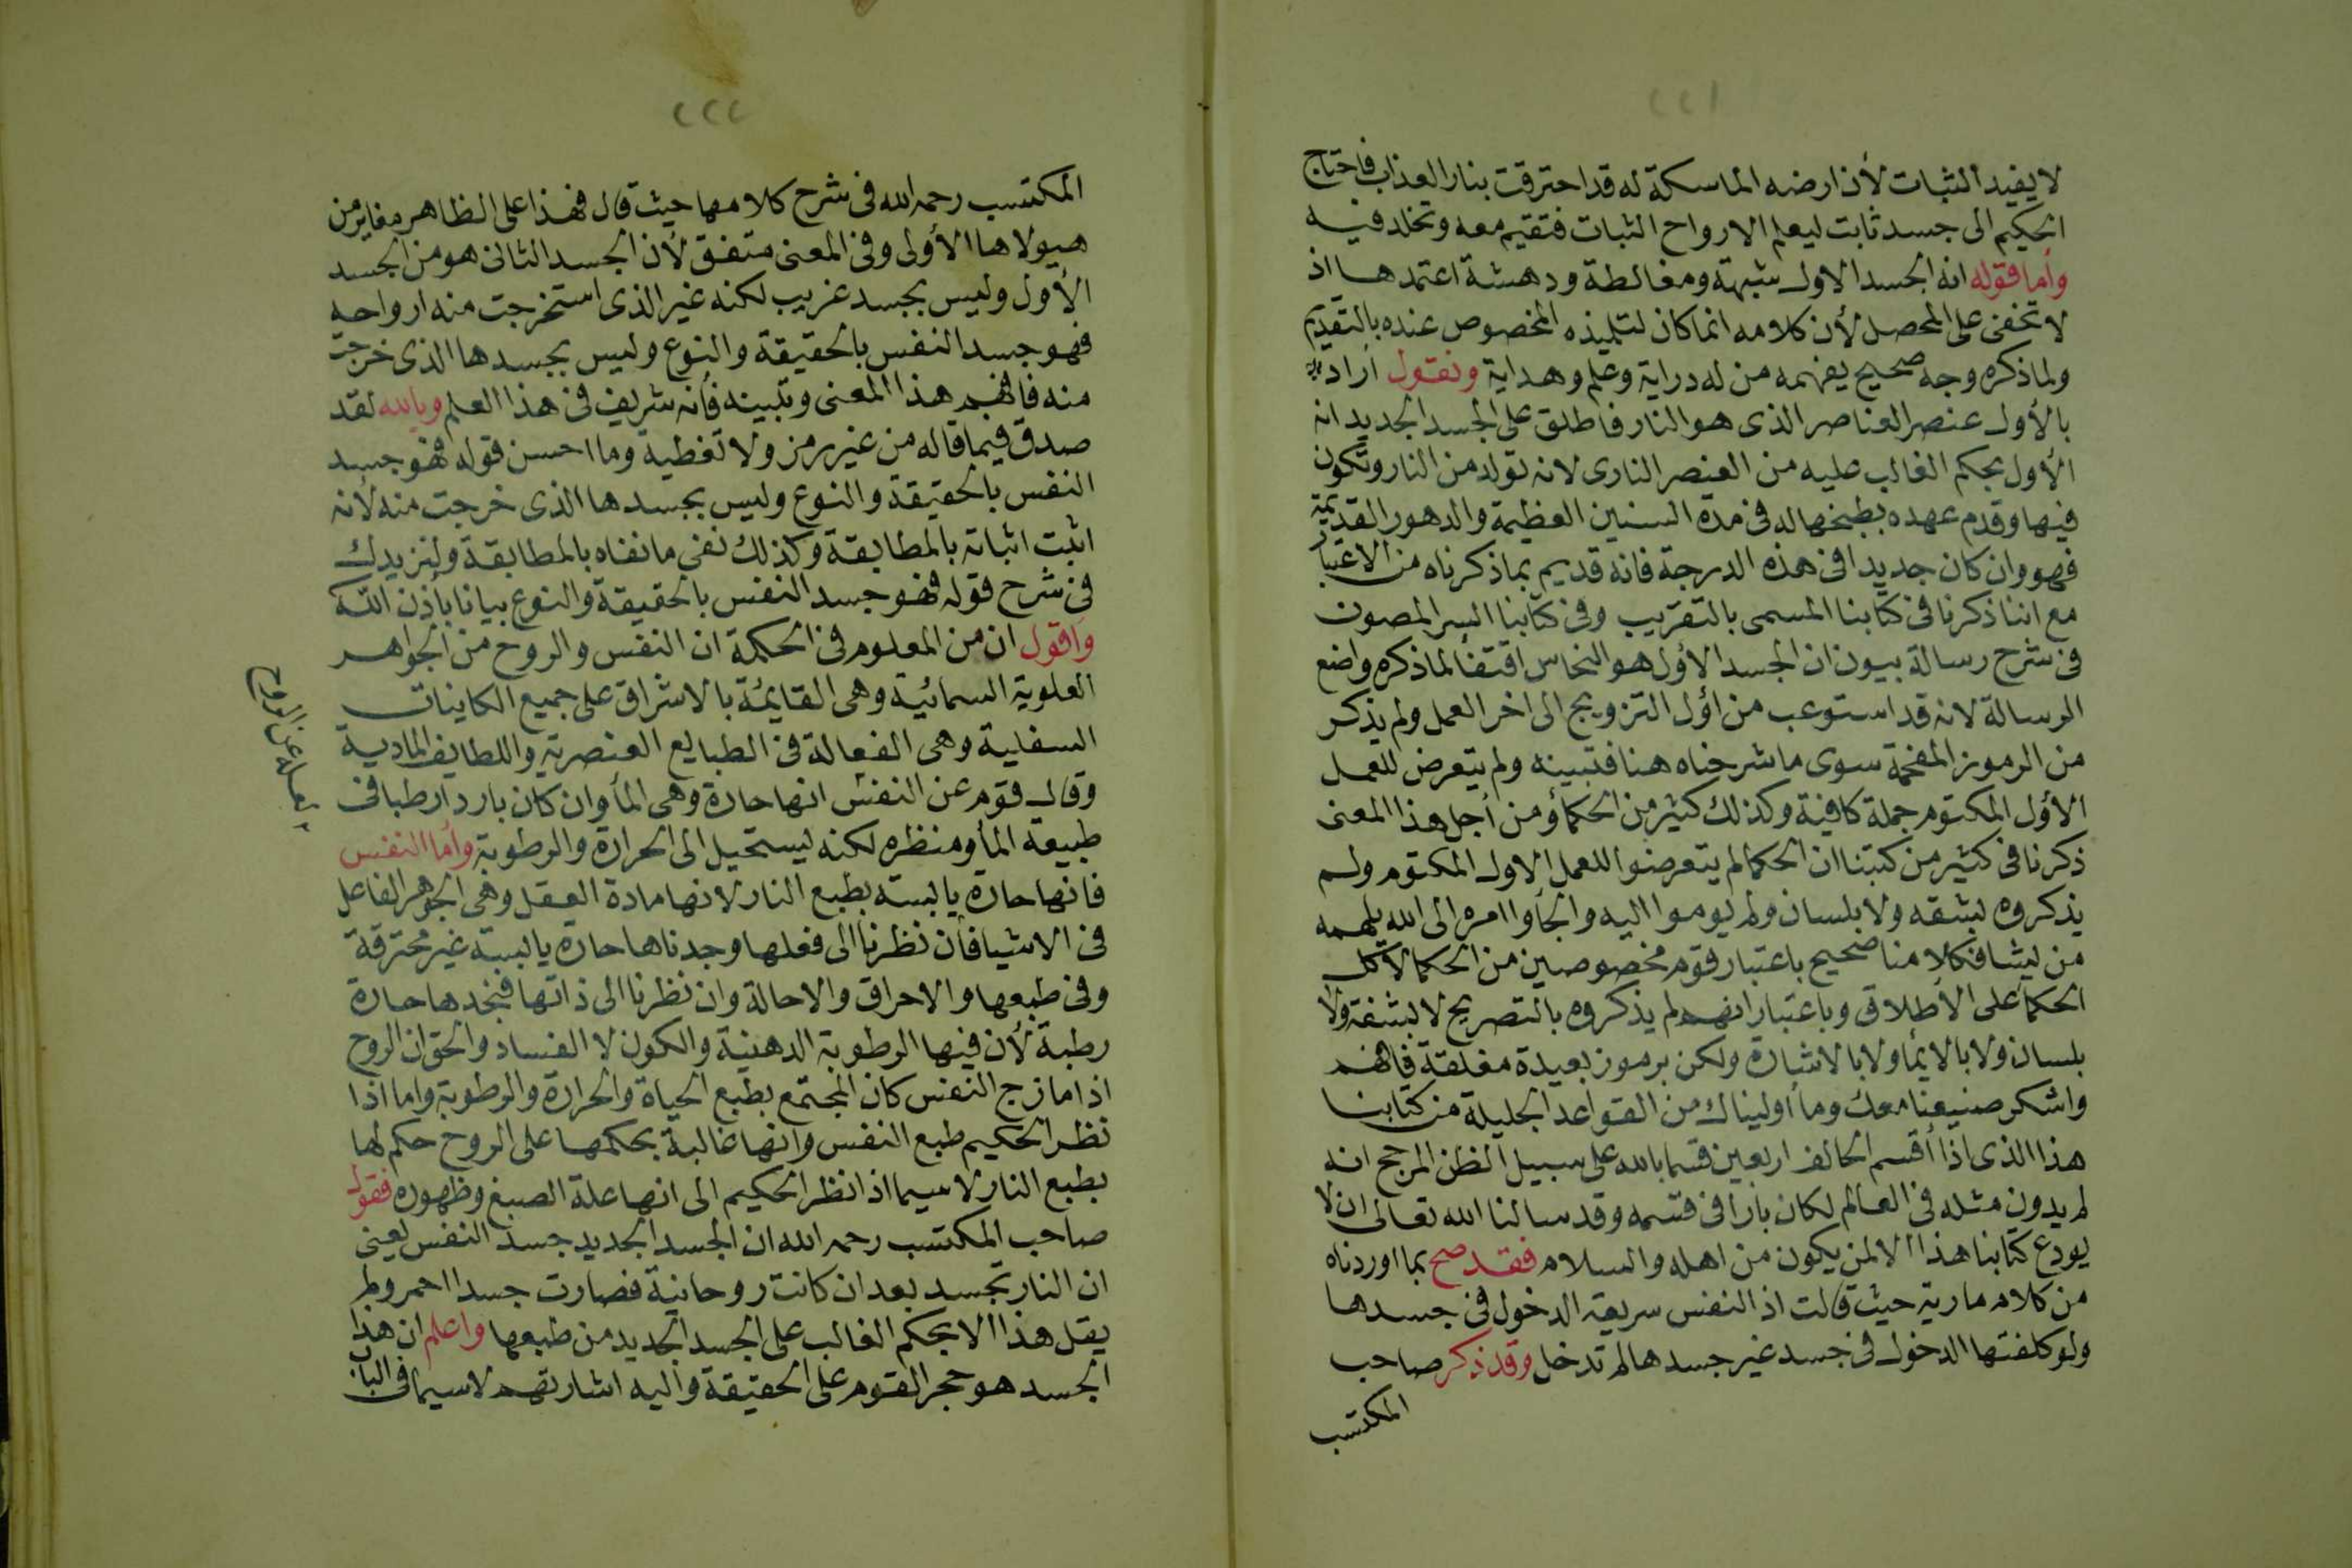 ٢٢١
لا يفيد الثبات لأن ارضه الماسكة له قد احترقت بنار العذاب فاحتاج
الحكيم الى جسد ثابت ليعلم الارواح الثبات فتقيم معه وتخلد فيه
وأما قوله انه الجسد الاول شبهة ومغالطة ودهشة اعتمدها اذ
لا تخفى على المحصل لأن كلامه انما كان لتلميذه المخصوص عنده بالتقديم
ولما ذكره وجه صحيح يفهمه من له دراية وعلم وهداية ونقول أراد
بالأول عنصر العناصر الذى هو النار فاطلق على الجسد الجديد انه
الأول بحكم الغالب عليه من العنصر النارى لانه تولد من النار وتكون
فيها وقدم عهده بطبخها له فى مدة السنين العظيمة والدهور القديمة
فهو وان كان جديدا فى هذه الدرجة فانه قديم بما ذكرناه من الاعتبا
مع اننا ذكرنا فى كتابنا المسمى بالتقريب وفى كتابنا السر المصون
فى شرح رسالة بيون ان الجسد الأول هو النحاس اقتفأ لما ذكره واضع
الرسالة لانه قد استوعب من اول التزويج الى اخر العمل ولم يذكر
من الرموز المفخمة سوى ما شرحناه هنا فتبينه ولم يتعرض للعمل
الأول المكتوم جملة كافية وكذلك كثير من الحكمأ ومن أجل هذا المعنى
ذكرنا فى كثير من كتبنا ان الحكما لم يتعرضوا للعمل الاول المكتوم ولم
يذكروه بشفه ولا بلسان ولم يوموا اليه والجأوا امره الى الله يلهمه
من يشا فكلامنا صحيح باعتبار قوم مخصوصين من الحكما لا كل
الحكمأ على الأطلاق وباعتبار انهم لم يذكروه بالتصريح لا بشفة ولا
بلسان ولا بالايمأ ولا بالاشارة ولكن برموز بعيدة مغلقة فافهم
واشكر صنيعنا معك وما أوليناك من القواعد الجليلة من كتابنا
هذا الذى اذا أقسم الحالف اربعين قسما بالله على سبيل الظن المرجح انه
لم يدون مثله فى العالم لكان بارا فى قسمه وقد سالنا الله تعالى ان لا
يودع كتابنا هذا الا لمن يكون من اهله والسلام فقد صح بما اوردناه
من كلام مارية حيث قالت اذ النفس سريعة الدخول فى جسدها
ولو كلفتها الدخول فى جسد غير جسدها لم تدخل وقد ذكر صاحب
المكتسب
٢٢٢
المكتسب رحمه الله فى شرح كلامها حيث قال فهذا على الظاهر مغاير من
هيولاها الأولى وفى المعنى متفق لأن الجسد الثانى هو من الجسد
الأول وليس بجسد غريب لكنه غير الذى استخرجت منه ارواحه
فهو جسد النفس بالحقيقة والنوع وليس بجسدها الذى خرجت
منه فافهم هذا المعنى وتبينه فأنه شريف فى هذا العلم وبالله لقد
صدق فيما قاله من غير رمز ولا تغطية وما احسن قوله فهو جسد
النفس بالحقيقة والنوع وليس بجسدها الذى خرجت منه لأنه
اثبت اثباته بالمطابقة وكذلك نفى ما نفاه بالمطابقة ولنزيدك
فى شرح قوله فهو جسد النفس بالحقيقة والنوع بيانا بأذن الله
واقول ان من المعلوم فى الحكمة ان النفس والروح من الجواهر
العلوية السمائية وهى القايمة بالاشراق على جميع الكاينات
السفلية وهى الفعالة فى الطبايع العنصرية واللطايف المادية
وقال قوم عن النفس انها حارة وهى المأ وان كان باردا رطبا فى
طبيعة المأ ومنظره لكنه ليستحيل الى الحرارة والرطوبة وأما النفس
فانها حارة يابسة بطبع النار لانها مادة العقل وهى الجوهر الفاعل
فى الاشيا فأن نظرنا الى فعلها وجدناها حارة يابسة غير محترقة
وفى طبعها والاحراق والاحالة وان نظرنا الى ذاتها فنجدها حارة
رطبة لأن فيها الرطوبة الدهنية والكون لا الفساد والحق ان الروح
اذا مازج النفس كان المجتمع بطبع الحياة والحرارة والرطوبة واما اذا
نظر الحكيم طبع النفس وانها غالبة بحكمها على الروح حكم لها
بطبع النار لاسيما اذا نظر الحكيم الى انها علة الصبغ وظهوره فقول
صاحب المكتسب رحمه الله ان الجسد الجديد جسد النفس يعنى
ان النار تجسد بعد ان كانت روحانية فصارت جسدا احمر ولم
يقل هذا الا بحكم الغالب على الجسد الجديد من طبعها واعلم ان هذا
الجسد هو حجر القوم على الحقيقة واليه اشارتهم لاسيما فى الباب
عن الروح